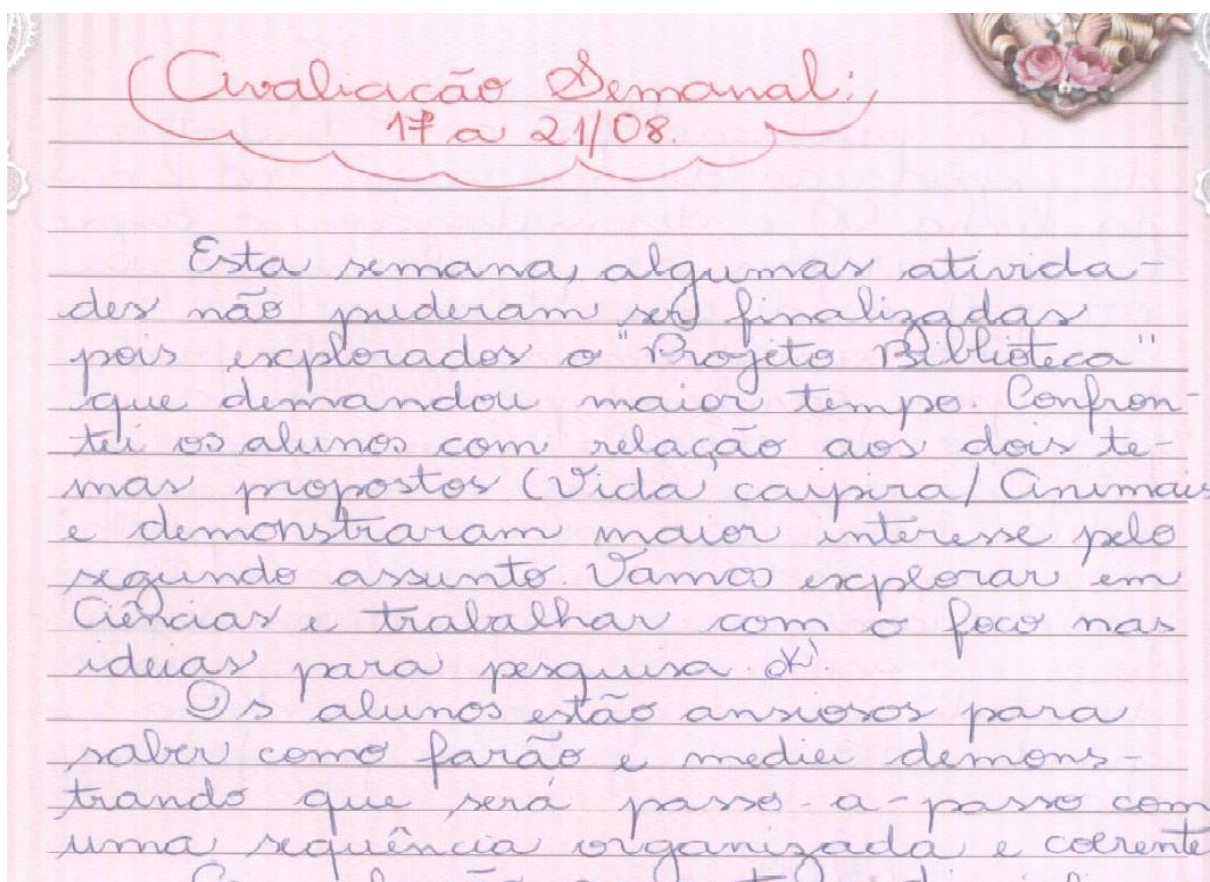 Avaliação Semanal:
17 a 21/08.
Esta semana, algumas ativida-
des não puderam ser finalizadas
pois explorados o "Projeto Biblioteca"
que demandou maior tempo. Confron-
tei os alunos com relação aos dois te-
mas propostos (Vida caipira/Animais
e demonstraram maior interesse pelo
segundo assunto. Vamos explorar em
Ciências e trabalhar com o foco nas
ideias para pesquisa. OK!
Os alunos estão ansiosos para
saber como farão e mediei demons-
trando que será passo-a-passo com
uma sequência organizada e coerente